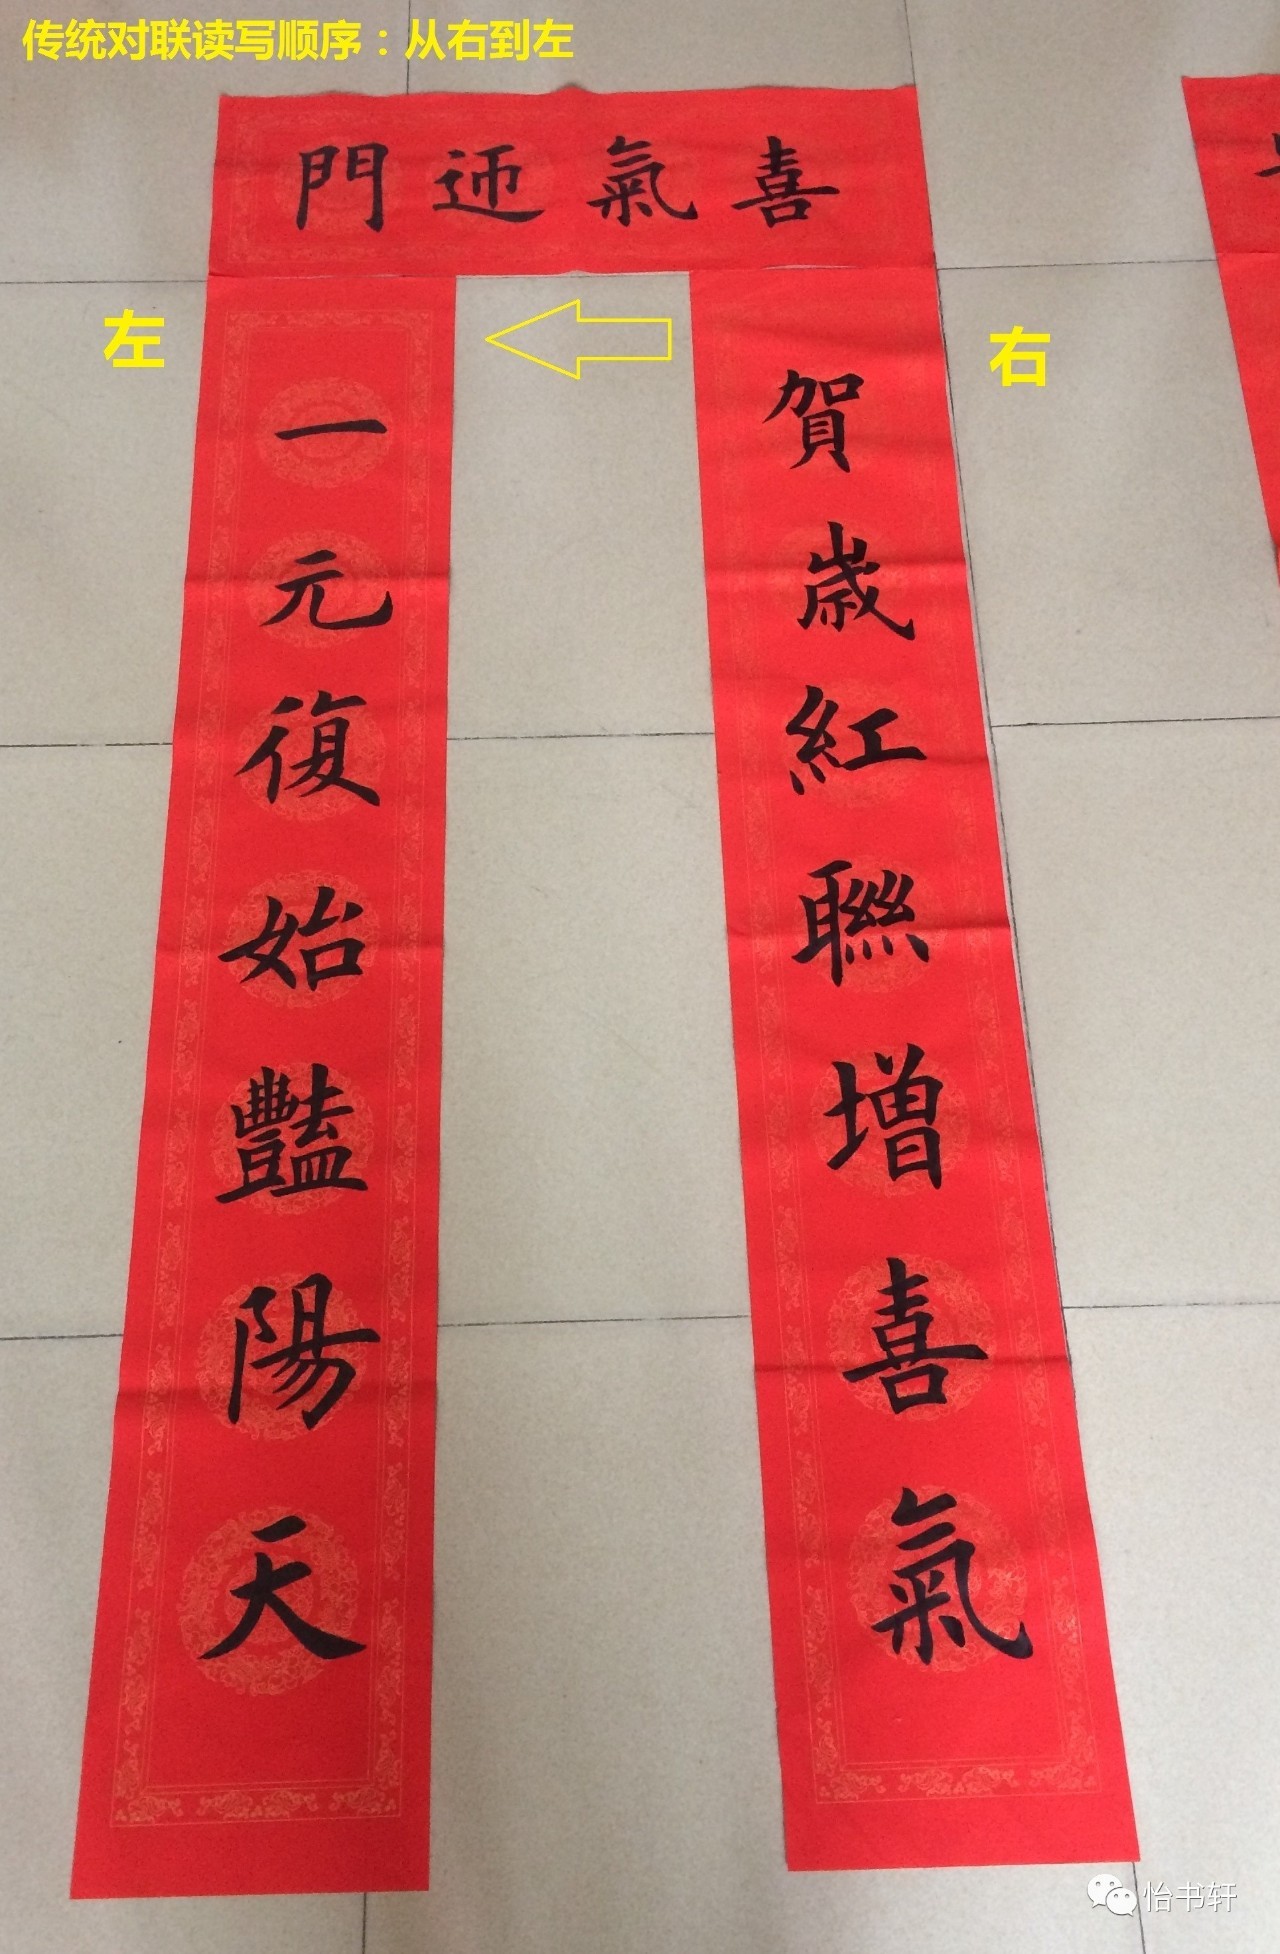 传统对联读写顺序：从右到左
喜氣迎門
右
賀歲紅聯增喜氣
左
一元復始豔陽天
怡书轩